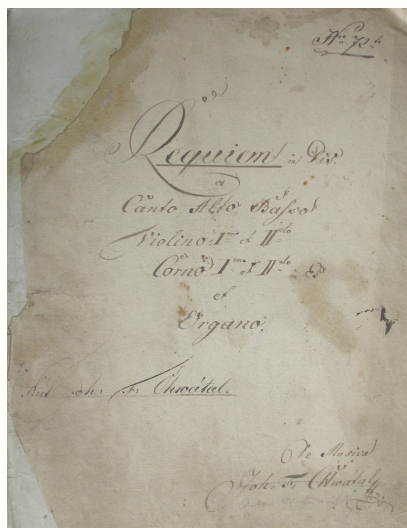 Requiem in Dis.
a
Canto Alto Basso
Violino Imo et IIdo
Corno Imo et IIdo in Es
et
Organo.
Aut Joh: Fr. Chwátal.
De Musica
Joh: Fr: Chwátal